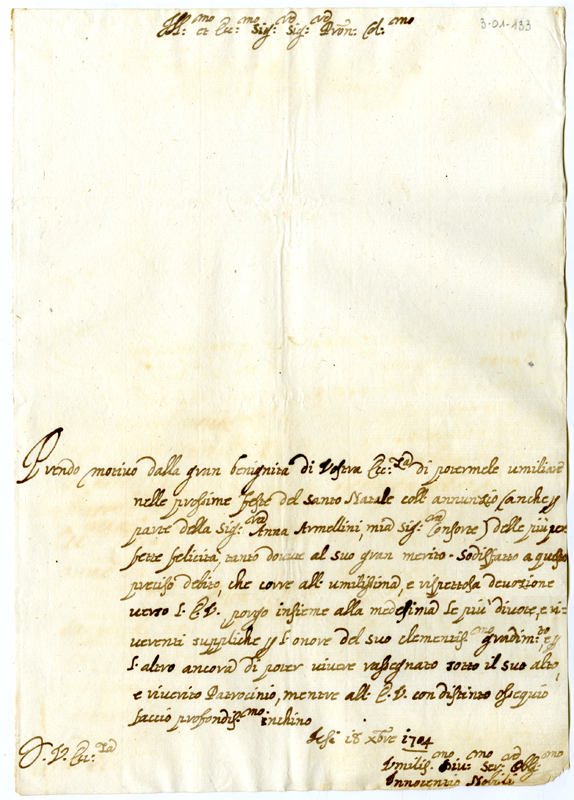 Ill:mo et Ecc:mo Sig:re Sig:re Pròn: Col:mo
3-01-133
Prendo motivo dalla gran benignità di Vostra Ecc:za di potermele umiliare
nelle prossime feste del Santo Natale coll'annunzio (anche p
parte della Sig:ra Anna Armellini, mia Sig:ra Consorte) delle più per
fette felicità, tanto dovute al suo gran merito. Sodisfatto a questo
preciso debito, che corre all'umilissima, e rispettosa devozione
verso l'E.V., porgo insieme alla medesima le più divote, e ri-
verenti suppliche p l'onore del suo clementis:mo gradim:to, e p
l'altro ancora di poter vivere rassegnato sotto il suo alto,
e riverito Patrocinio, mentre all'E.V. con distinto ossequio
faccio profondis:mo inchino
Jesi 18 Xbre 1704
D.V. Ecc:za
Umilis:mo Div:mo Ser:re Obl:mo
Innocenzio Nobili